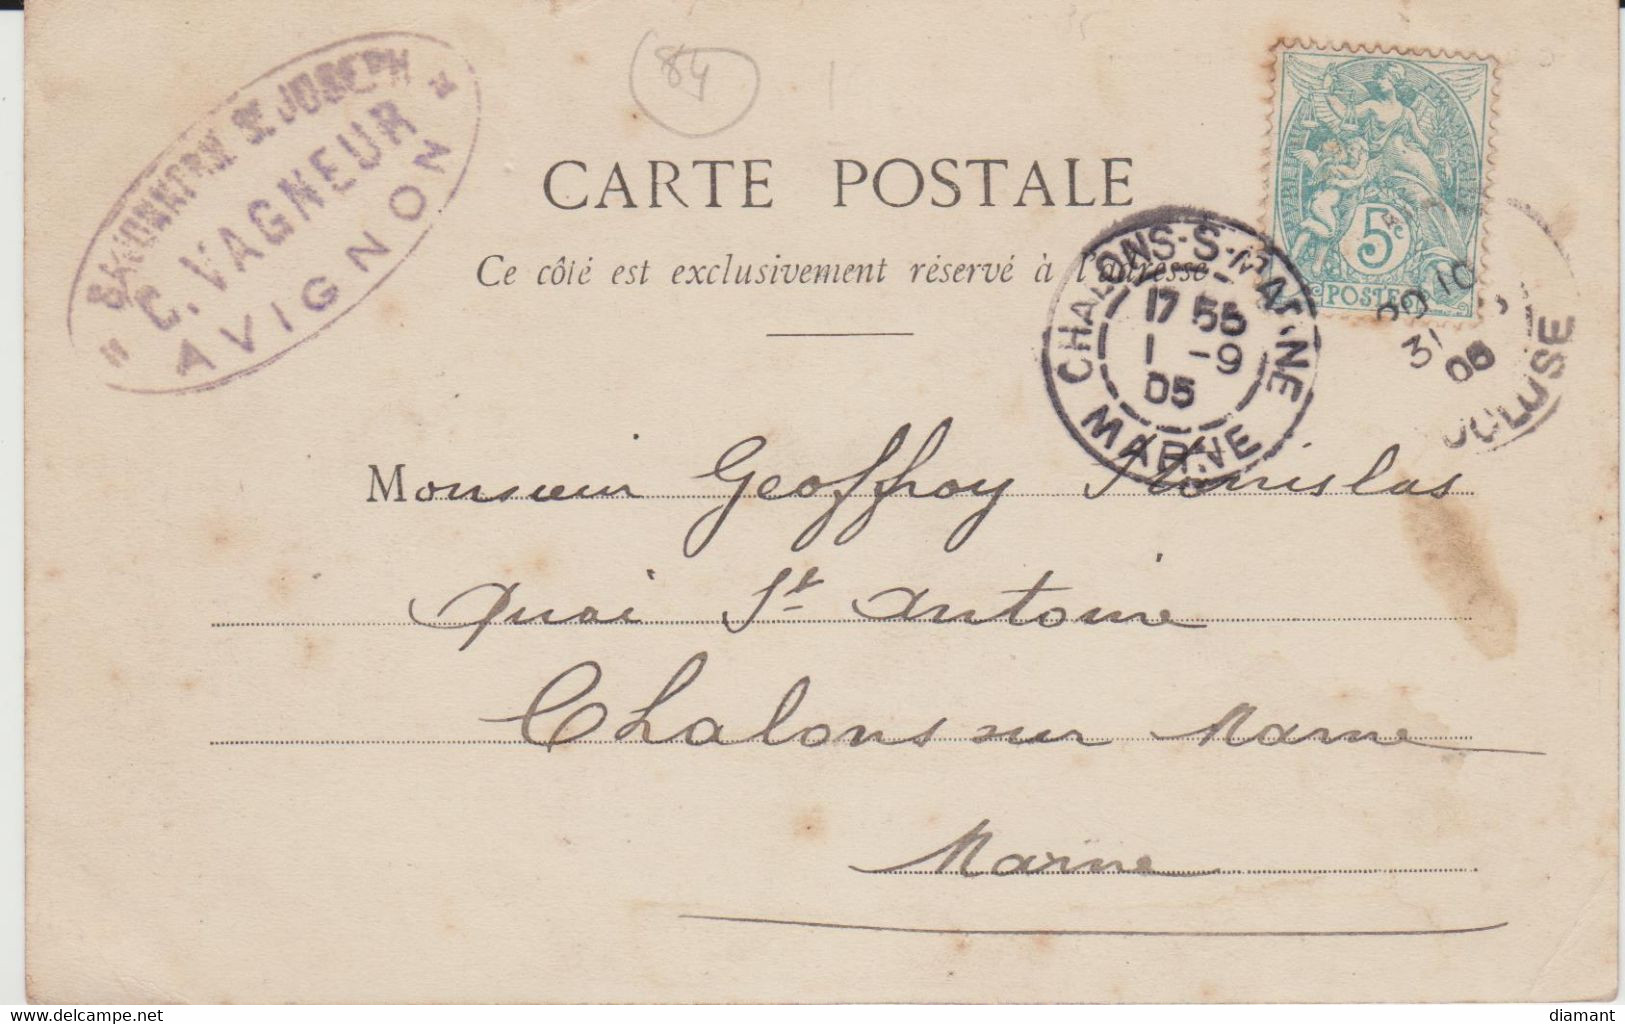 84
CARTE POSTALE
Ce côté est exclusivement réservé à l'adresse
ST JOSEPH
C. VAGNEUR
AVIGNON
5c
POSTES
CHALONS-S-MARNE
17 55
1 -9
05
MARNE
10
31
05
UCLUSE
Monsieur Geoffroy Stanislas
Quai St Antoine
Chalons sur Marne
Marne
www.delcampe.net
diamant